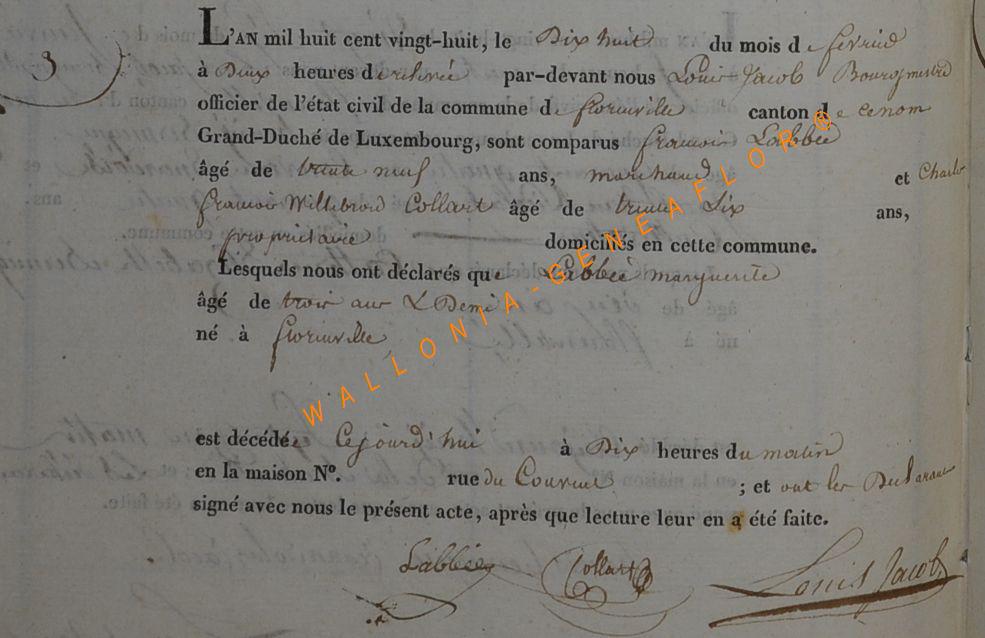 3
L'AN mil huit cent vingt-huit, le Dix huit du mois de fevrier
à Deux heures de relevée par-devant nous Louis Jacob Bourgmestre
officier de l'état civil de la commune de florenville canton de ce nom
Grand-Duché de Luxembourg, sont comparus françois Labbeé
âgé de trente neuf ans, marchand et Charles
françois Willebrord Collart âgé de trente Six ans,
proprietaire domiciliés en cette commune.
Lesquels nous ont déclarés que Labbeé marguerite
âgé de trois ans & Demi
né à florenville
est décédée Cejourd'hui à Dix heures du matin
en la maison N°. rue du Couvent ; et ont les Declarans
signé avec nous le présent acte, après que lecture leur en a été faite.
Labbeé Collart Louis Jacob
WALLONIA-GENEAFLOR ®